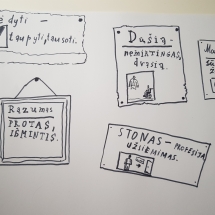 dyti –
taupyti, tausoti.
Dušia –
nemirtinga,
dvasia.
Razumas
PROTAS,
IŠMINTIS.
STONAS – PROFESIJA
UŽSIĖMIMAS.